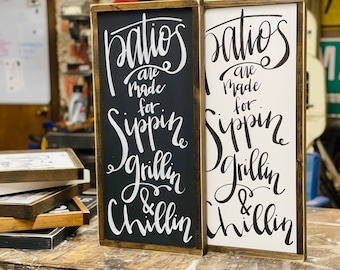 patios
are
made
for
Sippin
grillin
&
Chillin
patios
are
made
for
Sippin
grillin
&
Chillin